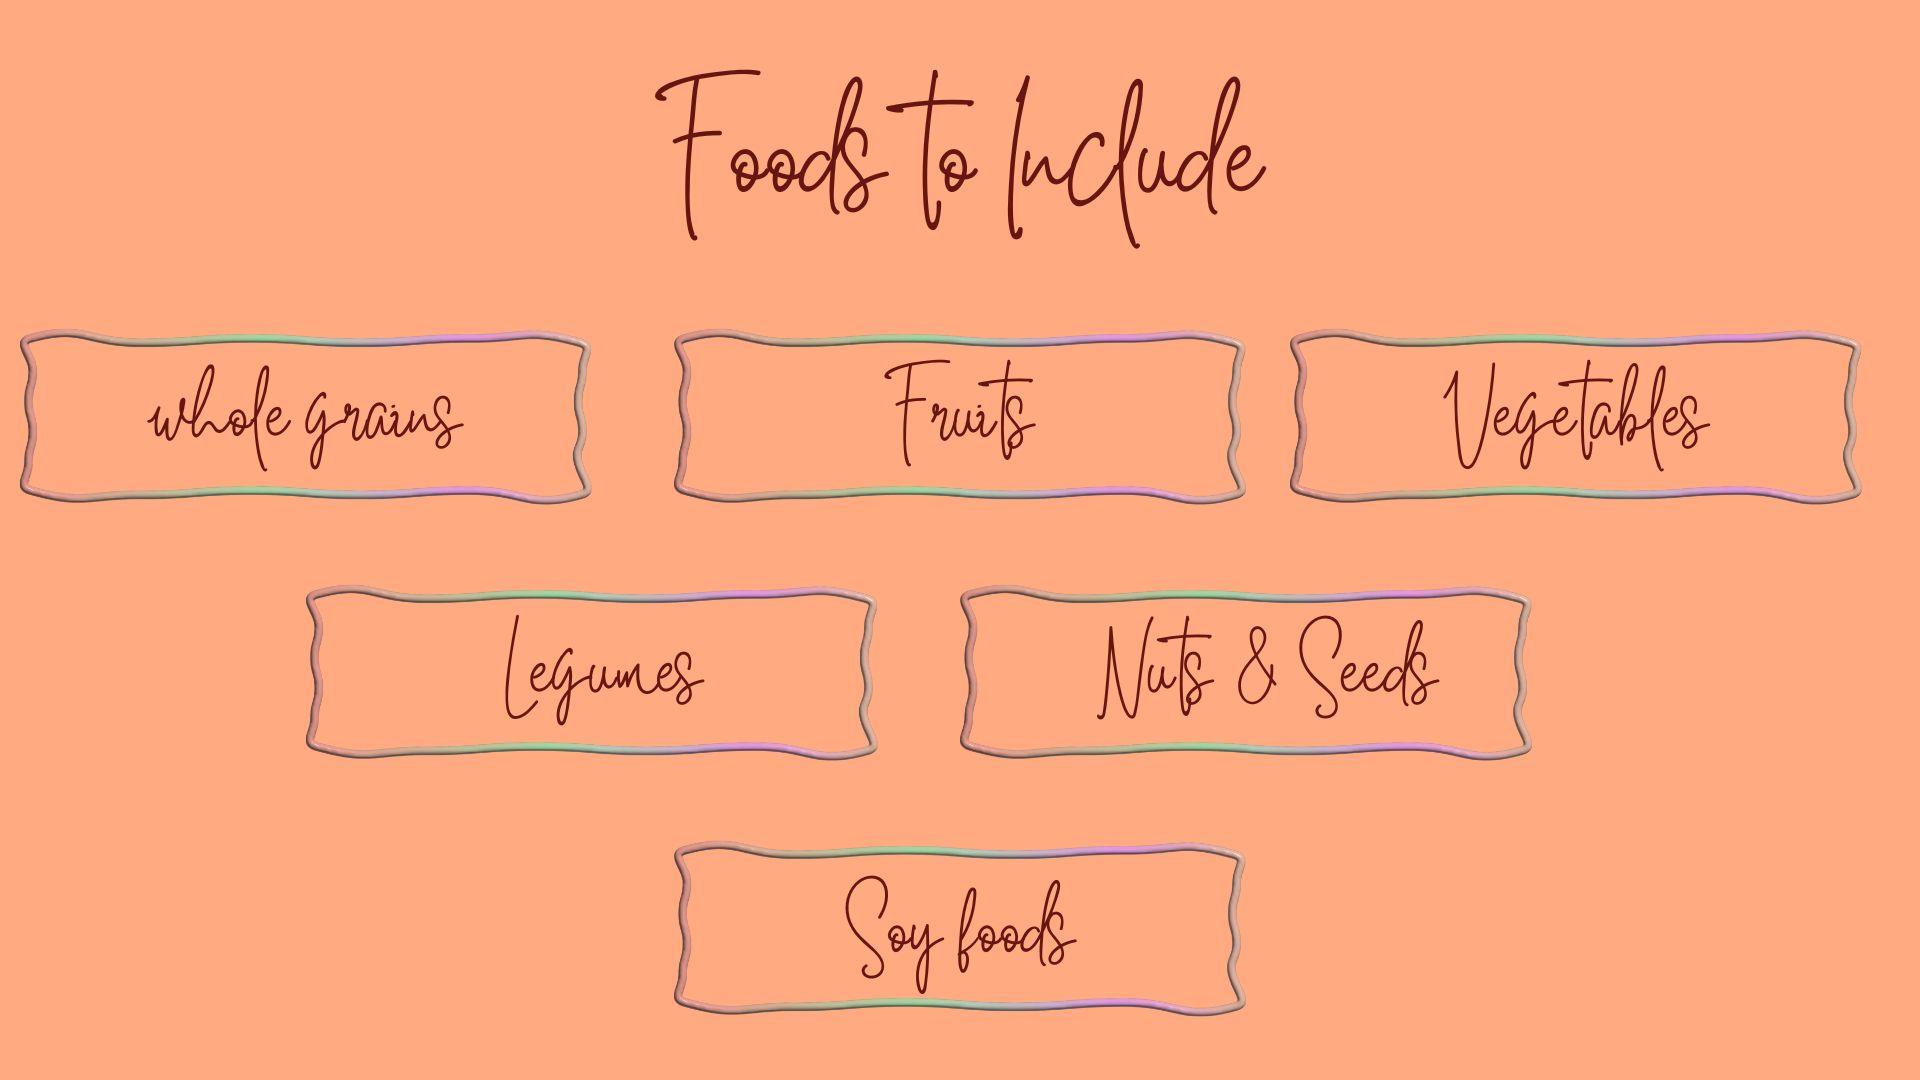 Foods to Include
whole grains
Fruits
Vegetables
Legumes
Nuts & Seeds
Soy foods